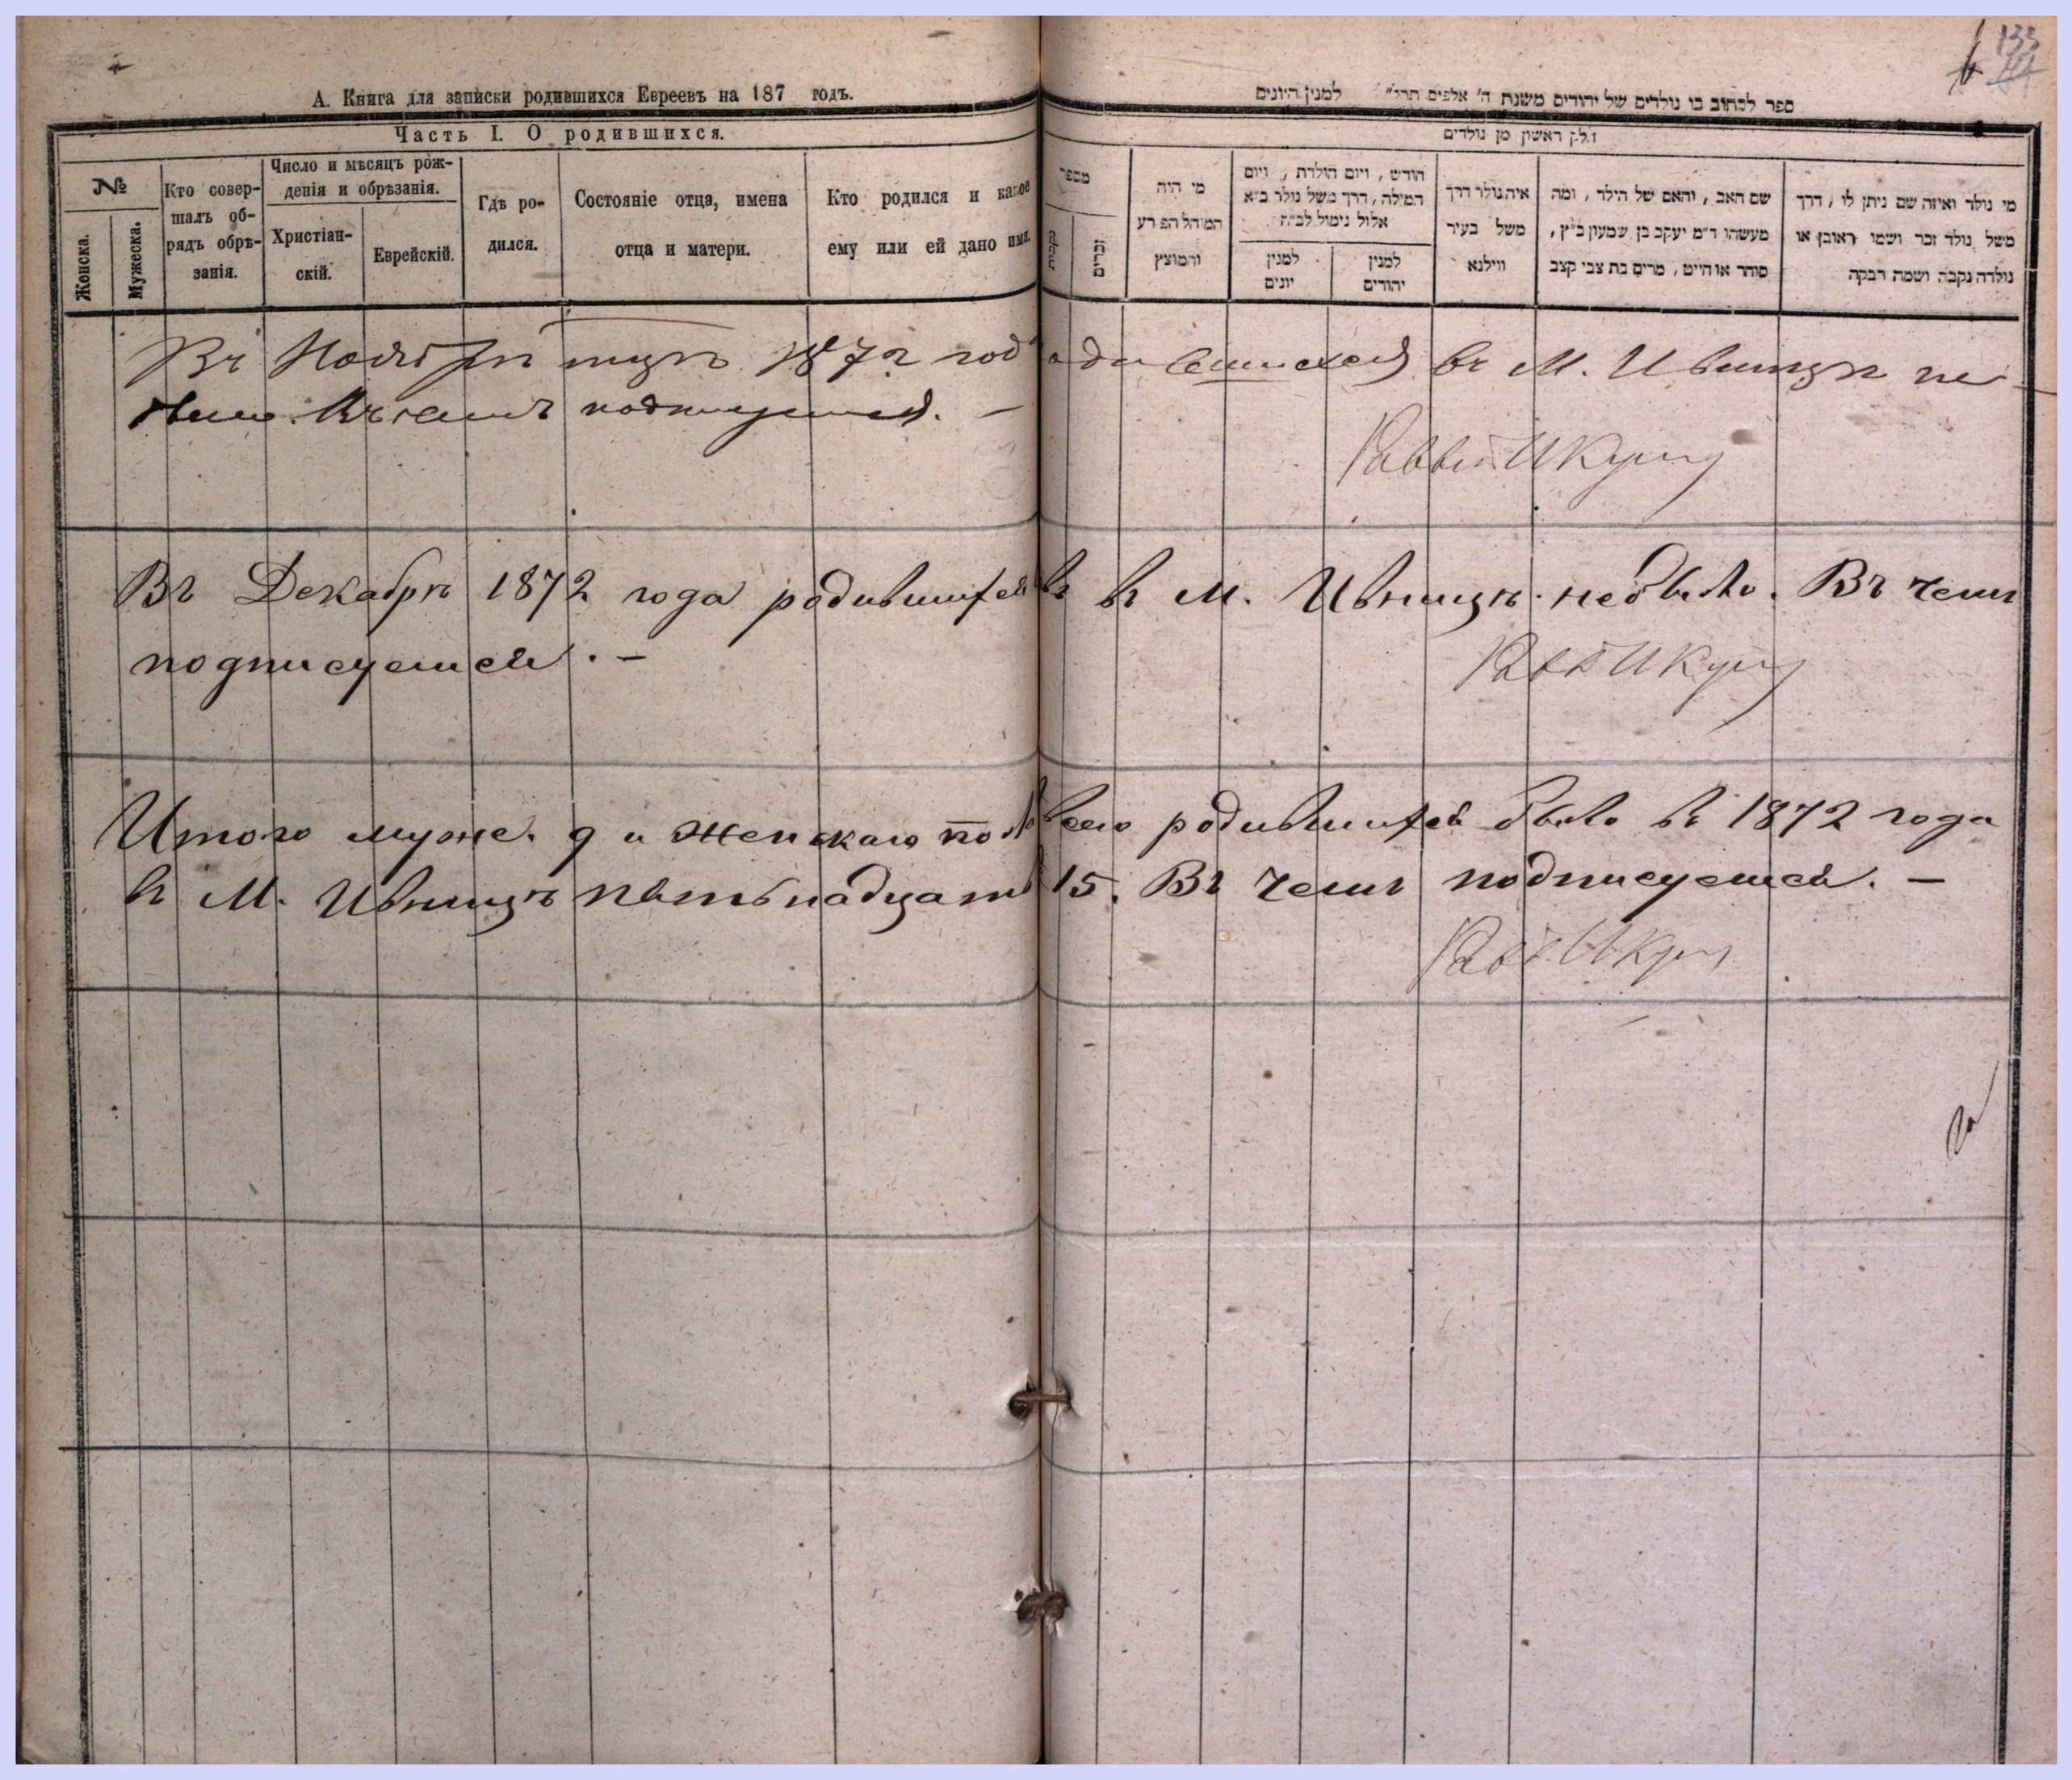 133
А. Книга для записки родившихся Евреевъ на 187 годъ.
Часть I. О родившихся.
№
Женска.
Мужеска.
Кто совер-
шалъ об-
рядъ обрѣ-
занія.
Число и мѣсяцъ рож-
денія и обрѣзанія.
Христіан-
скій.
Еврейскій.
Гдѣ ро-
дился.
Состояніе отца, имена
отца и матери.
Кто родился и какое
ему или ей дано имя.
ספר לכתוב בו נולדים של יהודים משנת ה' אלפים תרל" למנין היונים
חלק ראשון מן נולדים
מספר
נקבות
זכרים
מי היה
המוהל הפורע
והמוצץ
חודש, ויום הולדת, ויום
המילה, דרך משל נולד ב״א
אלול נימול לב״ה
למנין
יונים
למנין
יהודים
איה נולד דרך
משל בעיר
ווילנא
שם האב, והאם של הילד, ומה
מעשהו ד״מ יעקב בן שמעון כ״ץ,
סוחר או חייט, מרים בת צבי קצב
מי נולד ואיזה שם ניתן לו, דרך
משל נולד זכר ושמו ראובן או
נולדה נקבה ושמה רבקה
Въ Ноябрѣ 1872 года родившихся въ М. Ивницѣ не
было. Въ чемъ подписуемся. —
Раввинъ И Куниц
Въ Декабрѣ 1872 года родившихся въ М. Ивницѣ небыло. Въ чемъ
подписуемся. —
Равв И Куниц
Итого муже. 9 и Женскаго пола всего родившихся было въ 1872 года
въ М. Ивницѣ пятьнадцать 15. Въ чемъ подписуемся. —
Равв И Куниц